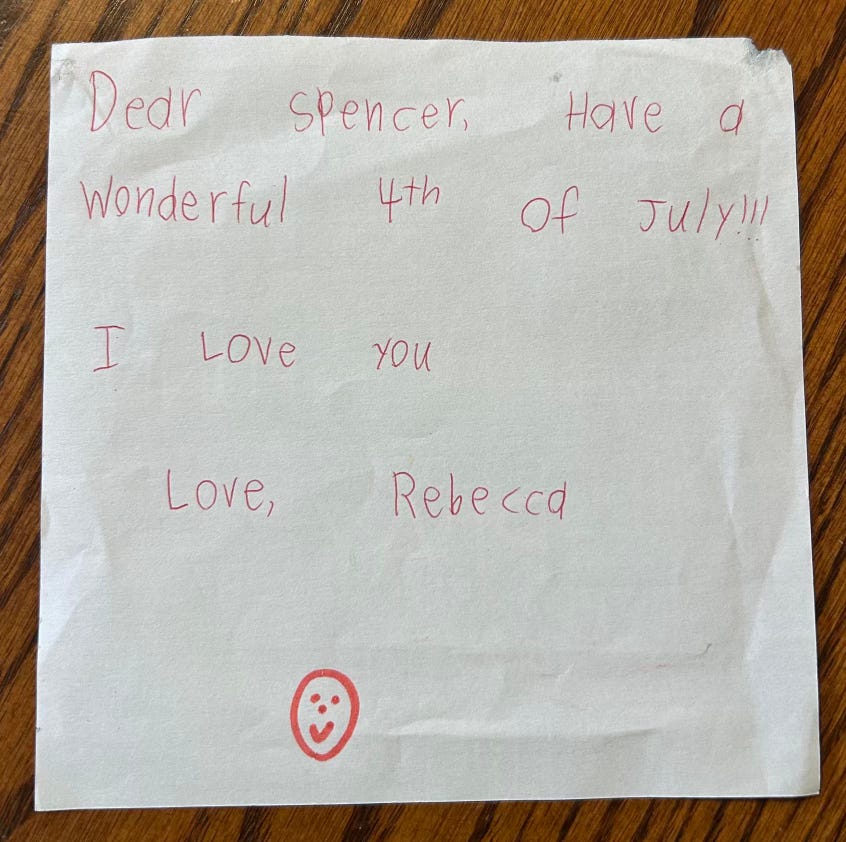 Dear Spencer, Have a
Wonderful 4th Of July!!!
I Love you
Love, Rebecca